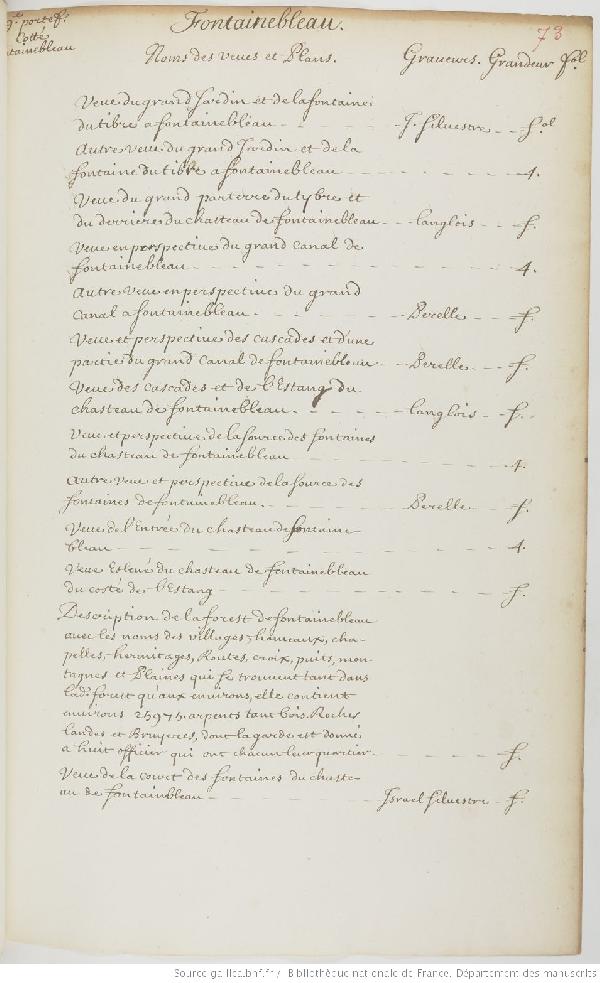 portef.
Cotté
Fontainebleau.
73
Noms des veues et Plans. Graueurs. Grandeur fol
Veue du grand Jardin et de la fontaine
du tibre a fontainebleau - - - J. Siluestre - - fol
Autre veue du grand Jardin et de la
fontaine du tibre a fontainebleau - - - 4.
Veue du grand parterre du tybre et
du derriere du chasteau de fontainebleau - - - langlois - - f.
Veue en perspectiue du grand Canal de
fontainebleau - - - 4.
Autre Veue en perspectiue du grand
Canal a fontainebleau - - - Perelle - - f.
Veue et perspectiue des cascades et d'une
partie du grand Canal de fontainebleau - - Perelle - - f.
Veue des cascades et de l'Estang du
chasteau de fontainebleau - - - langlois - - f.
Veue et perspectiue de la source des fontaines
du chasteau de fontainebleau - - - 4.
Autre Veue et perspectiue de la source des
fontaines de fontainebleau. - - - Perelle - - f.
Veue de l'Entrée du chasteau de fontaine-
bleau - - - 4.
Veue Esleué du chasteau de fontainebleau
du costé de l'Estang - - - f.
Description de la forest de fontainebleau
auec les noms des villages, hameaux, cha-
pelles, hermitages, Routes, croix, puits, mon-
tagnes et Plaines qui se trouuent tant dans
lad. forest qu'aux enuirons, elle contient
enuirons 25975 arpents tant bois, Roches
landes et Bruyeres, dont la garde est donné
a huit officier qui ont chacun leur quartier. - - - f.
Veue de la cour et des fontaines du chaste-
au de fontainbleau - - - Israel siluestre - f.
Source gallica.bnf.fr / Bibliothèque nationale de France. Département des manuscrits